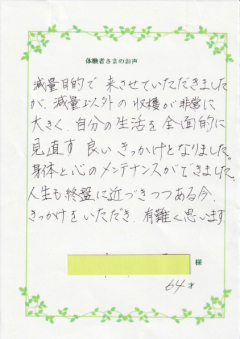 体験者さまのお声
減量目的で 来させていただきました
が、減量以外の収穫が非常に
大きく、自分の生活を全面的に
見直す 良いきっかけとなりました。
身体と心のメンテナンスができました。
人生も終盤に近づきつつある今、
きっかけをいただき、有難く思います
様
64才